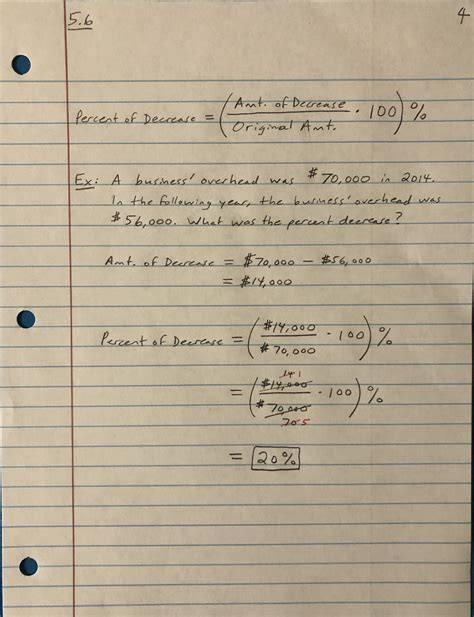 5.6 4
Percent of Decrease = (Amt. of Decrease / Original Amt. · 100) %
Ex: A business' overhead was $70,000 in 2014.
In the following year, the business' overhead was
$56,000. What was the percent decrease?
Amt. of Decrease = $70,000 - $56,000
= $14,000
Percent of Decrease = ($14,000 / $70,000 · 100) %
14 1
= ($14,000 / $70,000 · 100) %
70 5
= 20%